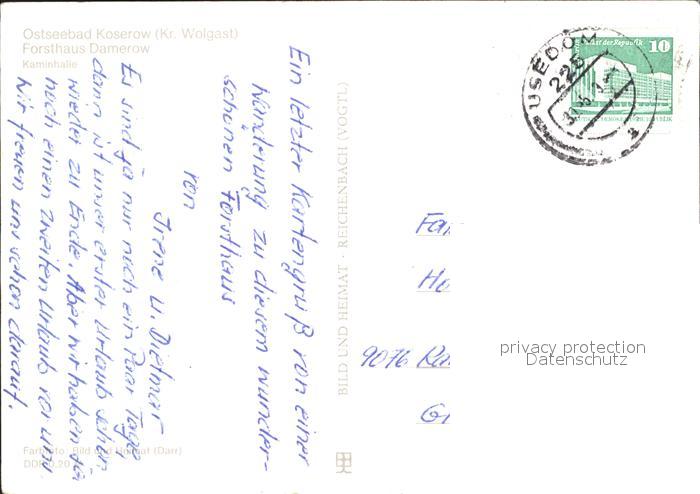 Ostseebad Koserow (Kr. Wolgast)
Forsthaus Damerow
Kaminhalle
Ein letzter Kartengruß von einer
Wanderung zu diesem wunder-
schönen Forsthaus
von
Irene u. Dietmar
Es sind ja nur noch ein Paar Tage,
dann ist unser erster Urlaub schon
wieder zu Ende. Aber wir haben ja
noch einen zweiten Urlaub vor uns.
Wir freuen uns schon darauf.
Farbfoto: Bild und Heimat (Darr)
DDR 0,20
BILD UND HEIMAT · REICHENBACH (VOGTL)
USEDOM
225
10
9076
privacy protection
Datenschutz